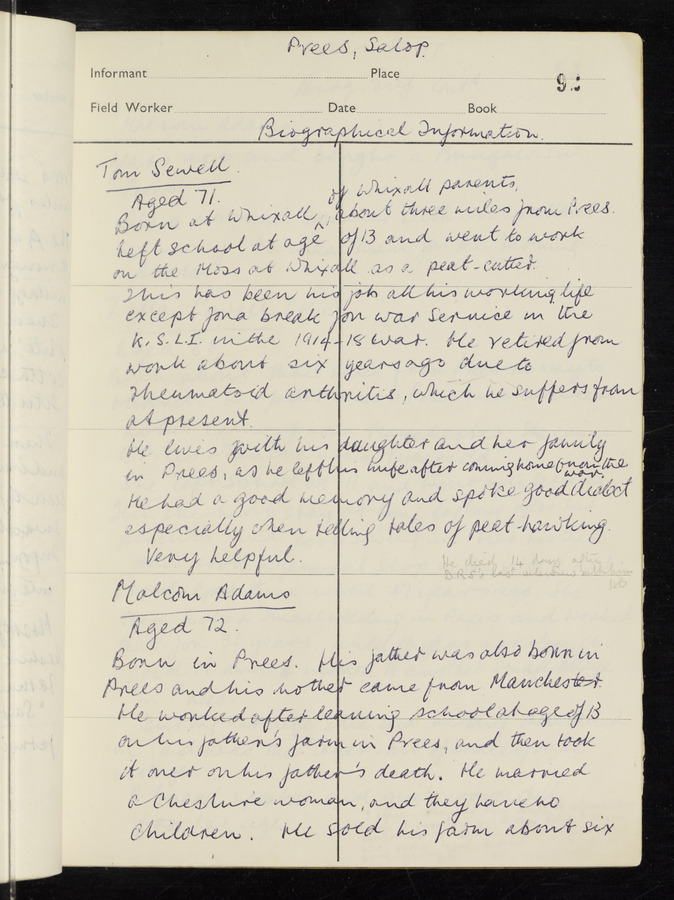 Prees, Salop.
Informant Place
Field Worker Date Book
Biographical Information.
Tom Sewell.
Aged 71. of Whixall parents,
Born at Whixall ^ about three miles from Prees.
Left school at age of 13 and went to work
on the Moss at Whixall as a peat-cutter.
This has been his job all his working life
except for a break for war service in the
K.S.L.I. in the 1914-18 war. He retired from
work about six years ago due to
rheumatoid arthritis, which he suffers from
at present.
He lives with his daughter and her family
in Prees, as he left his wife after coming home from the war.
He had a good memory and spoke good dialect
especially when telling tales of peat-hawking.
Very helpful.
He died 14 days after
D.R.S's last interview with him
Malcom Adams
Aged 72.
Born in Prees. His father was also born in
Prees and his mother came from Manchester.
He worked after leaving school at age of 13
on his father's farm in Prees, and then took
it over on his father's death. He married
a Cheshire woman, and they have no
children. He sold his farm about six